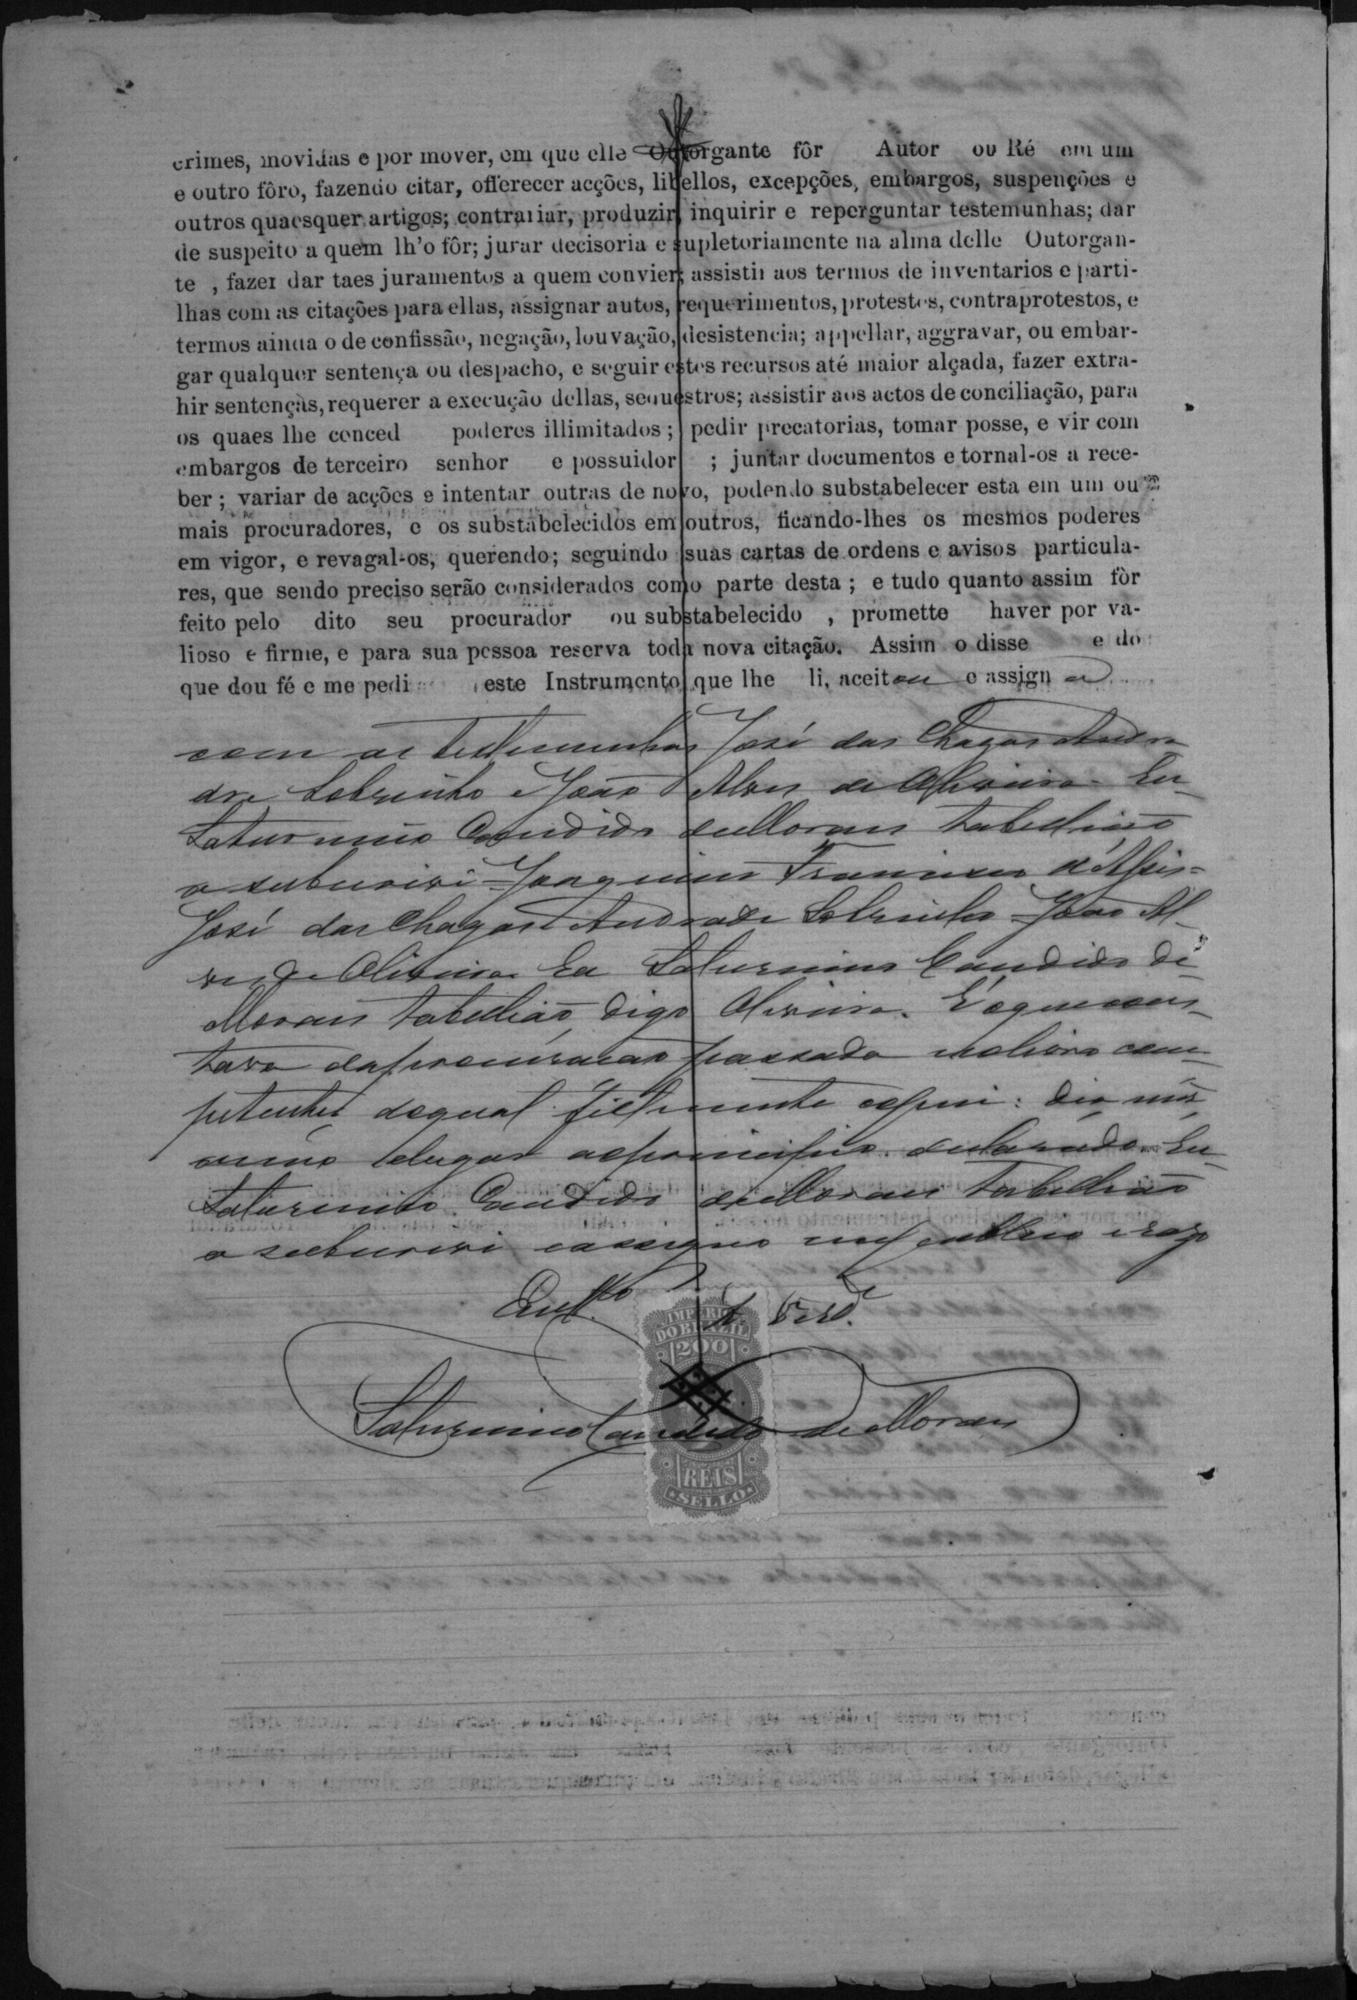 crimes, movidas e por mover, em que elle Outorgante fôr Autor ou Ré em um
e outro fôro, fazendo citar, offerecer acções, libellos, excepções, embargos, suspenções e
outros quaesquer artigos; contrariar, produzir, inquirir e reperguntar testemunhas; dar
de suspeito a quem lh'o fôr; jurar decisoria e supletoriamente na alma delle Outorgan-
te , fazer dar taes juramentos a quem convier; assistir aos termos de inventarios e parti-
lhas com as citações para ellas, assignar autos, requerimentos, protestos, contraprotestos, e
termos ainda o de confissão, negação, louvação, desistencia; appellar, aggravar, ou embar-
gar qualquer sentença ou despacho, e seguir estes recursos até maior alçada, fazer extra-
hir sentenças, requerer a execução dellas, sequestros; assistir aos actos de conciliação, para
os quaes lhe conced poderes illimitados ; pedir precatorias, tomar posse, e vir com
embargos de terceiro senhor e possuidor ; juntar documentos e tornal-os a rece-
ber ; variar de acções e intentar outras de novo, podendo substabelecer esta em um ou
mais procuradores, e os substabelecidos em outros, ficando-lhes os mesmos poderes
em vigor, e revagal-os, querendo; seguindo suas cartas de ordens e avisos particula-
res, que sendo preciso serão considerados como parte desta ; e tudo quanto assim fôr
feito pelo dito seu procurador ou substabelecido , promette haver por va-
lioso e firme, e para sua pessoa reserva toda nova citação. Assim o disse e do
que dou fé e me pedi este Instrumento que lhe li, aceitou e assigna
com as testemunhas José das Chagas Andra
de Sobrinho e João Alves de Oliveira. Eu
Saturnino Candido de Moraes Tabellião
o subscrivi = Joaquim Francisco d'Assis =
José das Chagas Andrade Sobrinho = João Al
ves de Oliveira Eu Saturnino Candido de
Moraes Tabellião, digo Oliveira. É o que cons-
tava da procuração passada no livro com-
petente, do qual fielmente copiei: dia mez
anno e lugar ao principio declarado. Eu
Saturnino Candido de Moraes Tabellião
o subscrevi e assigno em publico e razo
Em tto de verde.
IMPERIO
DO BRAZIL
200
Saturnino Candido de Moraes
REIS
SELLO